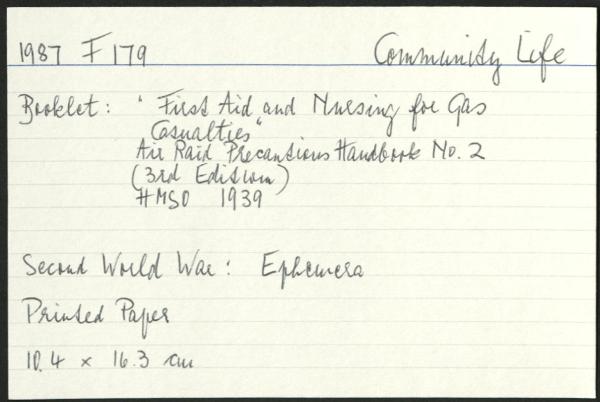 1987 F 179 Community Life
Booklet: "First Aid and Nursing for Gas
Casualties"
Air Raid Precautions Handbook No. 2
(3rd Edition)
HMSO 1939
Second World War: Ephemera
Printed Paper
10.4 x 16.3 cm